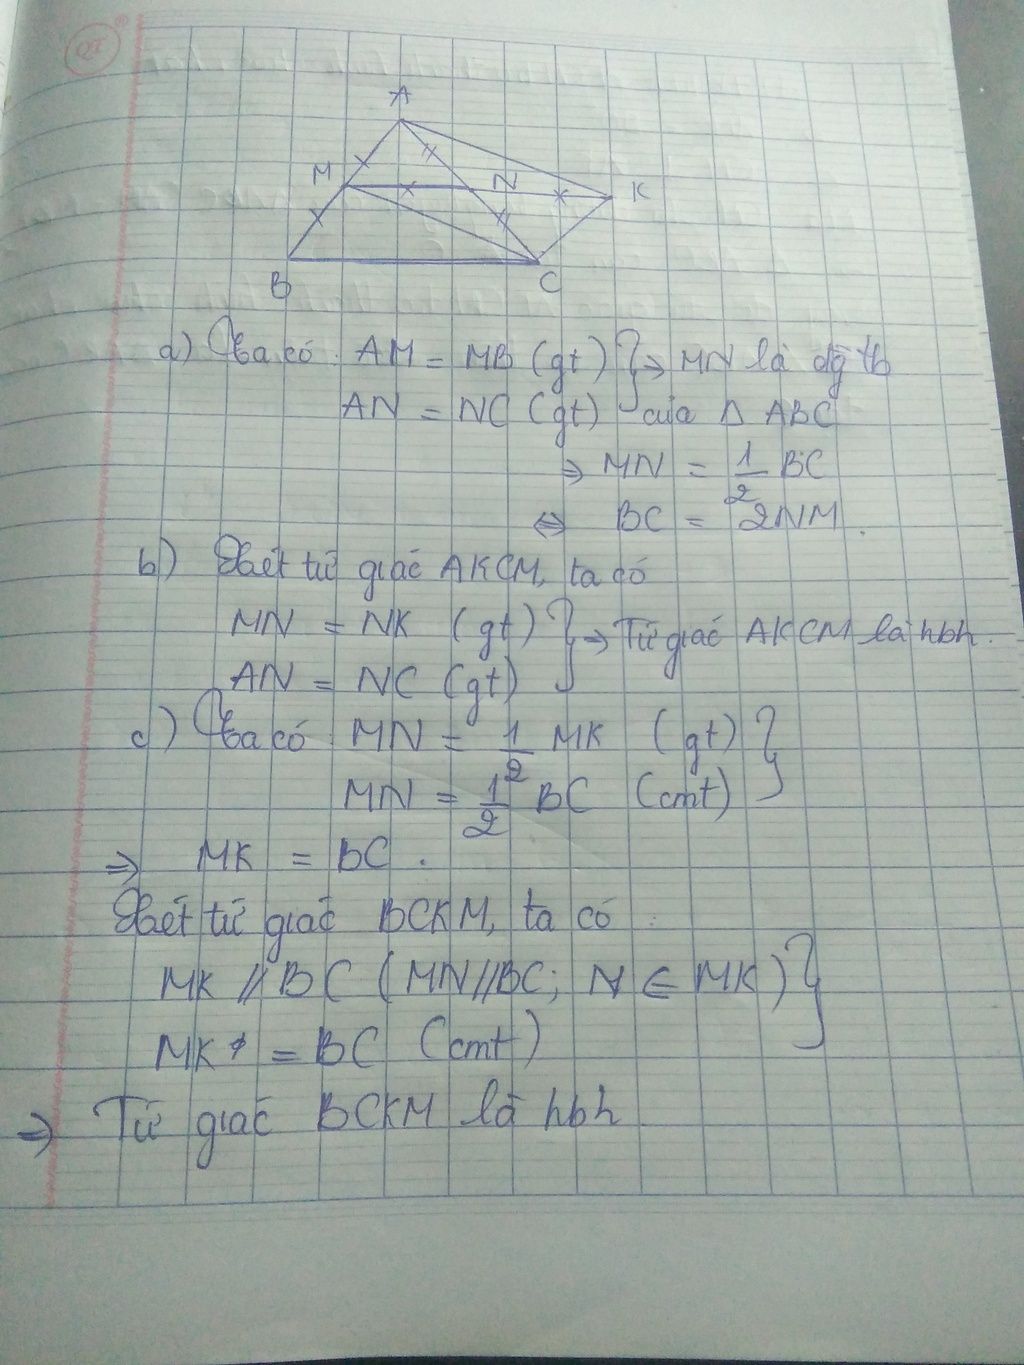 QT
A
M
N
K
B
C
a) Ta có: AM = MB (gt) } ⇒ MN là đg tb
AN = NC (gt) của Δ ABC
⇒ MN = 1/2 BC
⇔ BC = 2NM.
b) Xét tứ giác AKCM, ta có
MN = NK (gt) } ⇒ Tứ giác AKCM là hbh.
AN = NC (gt)
c) Ta có MN = 1/2 MK (gt) }
MN = 1/2 BC (cmt)
⇒ MK = BC.
Xét tứ giác BCKM, ta có:
MK // BC (MN//BC; N ∈ MK) }
MK = BC (cmt)
⇒ Tứ giác BCKM là hbh